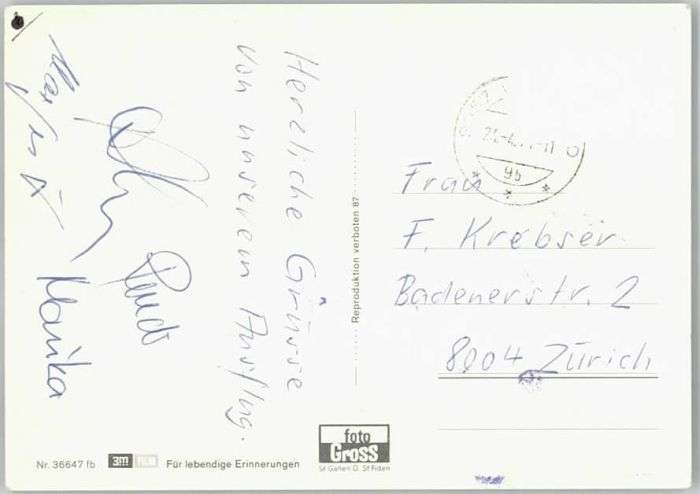 Herzliche Grüsse
von unserem Ausflug.
Marika
Reproduktion verboten 87
95
Frau
F. Krebser
Badenerstr. 2
8004 Zürich
Nr. 36647 fb
3M
Für lebendige Erinnerungen
foto
Gross
St Gallen O. St Fiden